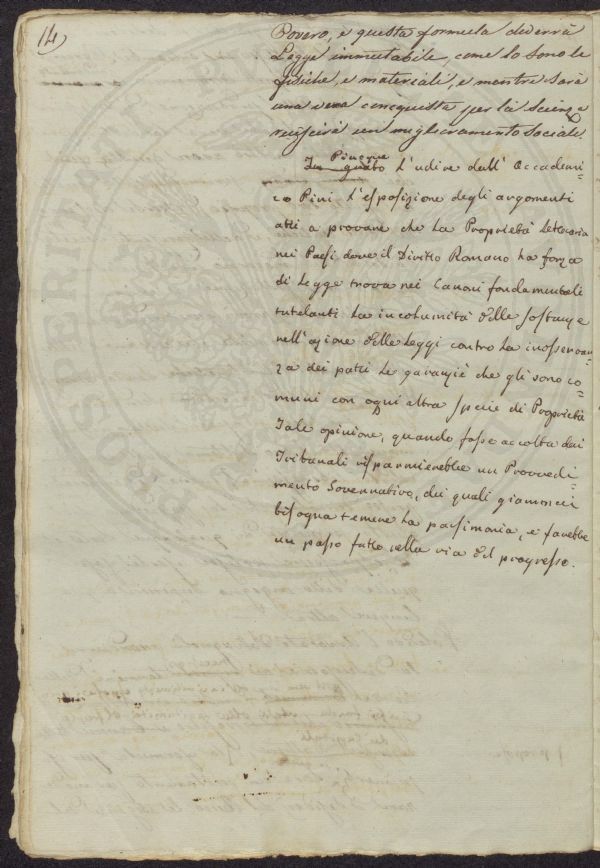 14)
Povero, e questa formula diverrà
Legge immutabile, come lo sono le
fisiche, e materiali, e mentre sarà
una vera conquista per la Scienza
riuscirà un miglioramento Sociale.
Piacque
In grato L'udire dall' Accademi-
co Pini L'esposizione degli argomenti
atti a provare che La Proprietà Letteraria
nei Paesi dove il Diritto Romano ha forza
di Legge trova nei Canoni fondamentali
tutelanti La incolumità delle sostanze
nell'azione delle Leggi contro La inosservan-
za dei patti Le garanzie che gli sono co-
muni con ogni altra specie di Proprietà
Tale opinione, quando fosse accolta dai
Tribunali risparmierebbe un Provvedi-
mento Governativo, dei quali giammai
bisogna temere La parsimonia, e farebbe
un passo fatto nella via del progresso.